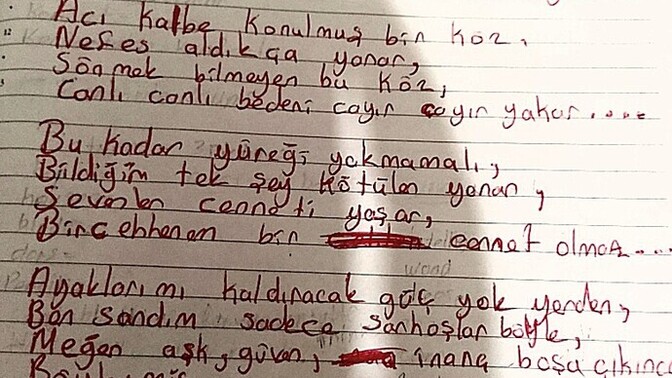 Acı kalbe konulmuş bir köz,
Nefes aldıkça yanar,
Sönmek bilmeyen bu köz,
Canlı canlı bedeni cayır cayır yakar....
Bu kadar yüreği yakmamalı,
Bildiğim tek şey kötüler yanar,
Sevenler cenneti yaşar,
Bir cehennem bir cennet olmaz....
Ayaklarımı kaldıracak güç yok yerden,
Ben sandım sadece sarhoşlar böyle,
Meğer aşk, güven, inanç boşa çıkınca